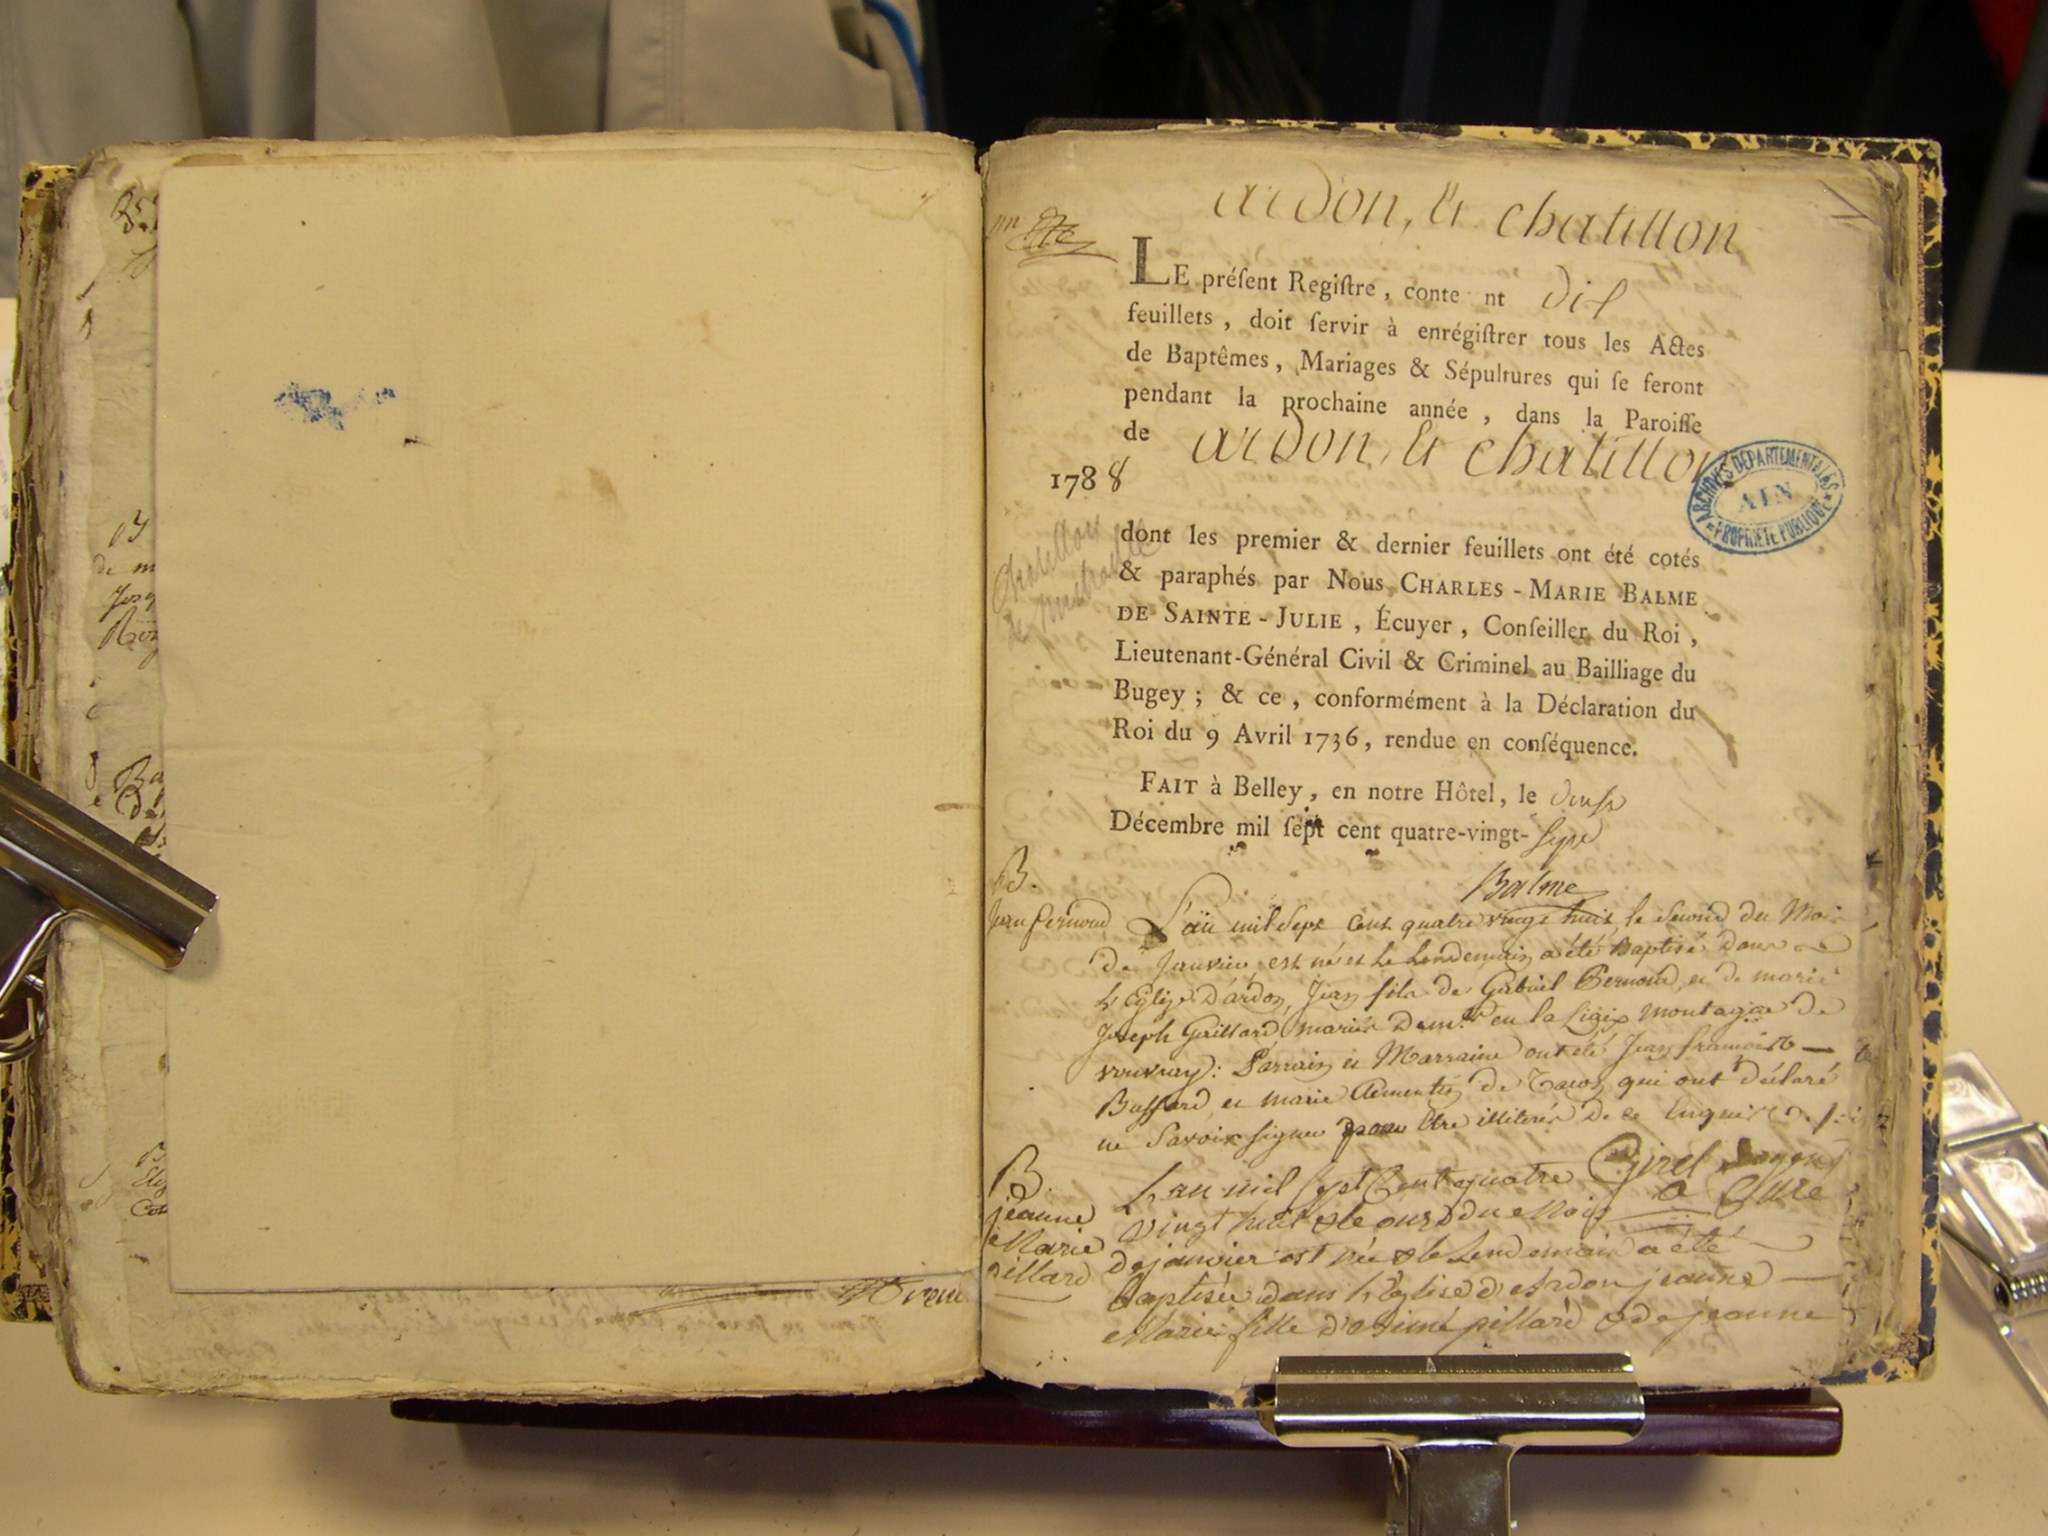 ardon, & chatillon
LE préſent Regiſtre, conte nt dix
feuillets, doit ſervir à enrégiſtrer tous les Actes
de Baptêmes, Mariages & Sépultures qui ſe feront
pendant la prochaine année, dans la Paroiſſe
de ardon, & chatillon
1788
ARCHIVES DÉPARTEMENTALES
AIN
PROPRIÉTÉ PUBLIQUE
Chatillon
de michaille
dont les premier & dernier feuillets ont été cotés
& paraphés par Nous CHARLES-MARIE BALME
DE SAINTE-JULIE, Écuyer, Conſeiller du Roi,
Lieutenant-Général Civil & Criminel au Bailliage du
Bugey; & ce, conformément à la Déclaration du
Roi du 9 Avril 1736, rendue en conſéquence.
FAIT à Belley, en notre Hôtel, le
Décembre mil ſept cent quatre-vingt-sept
Balme
B.
Jean Pernoud
L'an mil sept cent quatre vingt huit, le second du Mois
de Janvier est né et le Lendemain a été Baptisé dans
L'Eglise D'ardon, Jean fils de Gabriel Pernoud, et de marie
Joseph Gaillard, mariés en la montagne de
vouvray: Parrain et Marraine ont été Jean francois
Buffard et marie de qui ont déclaré
ne Savoir signer pour être illiterés de ce Enquis
Girel Curé
B.
jeanne
Marie
pillard
L'an mil sept Cent quatre
vingt huit & le onze du Mois
de janvier est née & le Lendemain a été
Baptisée dans L'Eglise d'Ardon jeanne
Marie fille d'aimé pillard & de jeanne